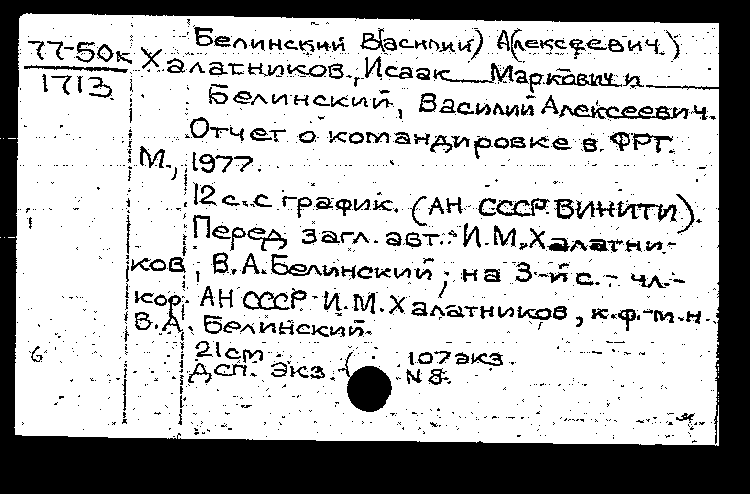 Белинский В(асилий) А(лексеевич.)
77-50к Халатников, Исаак Маркович и
1713
Белинский, Василий Алексеевич.
Отчет о командировке в ФРГ.
М., 1977.
12 с. с график. (АН СССР. ВИНИТИ).
Перед загл. авт.: И.М. Халатни-
ков, В.А. Белинский; на 3-й с. - чл.-
кор. АН СССР И.М. Халатников, к.ф.-м.н.
В.А. Белинский.
6 21 cm
ДСП. экз. 107 экз.
N 8.